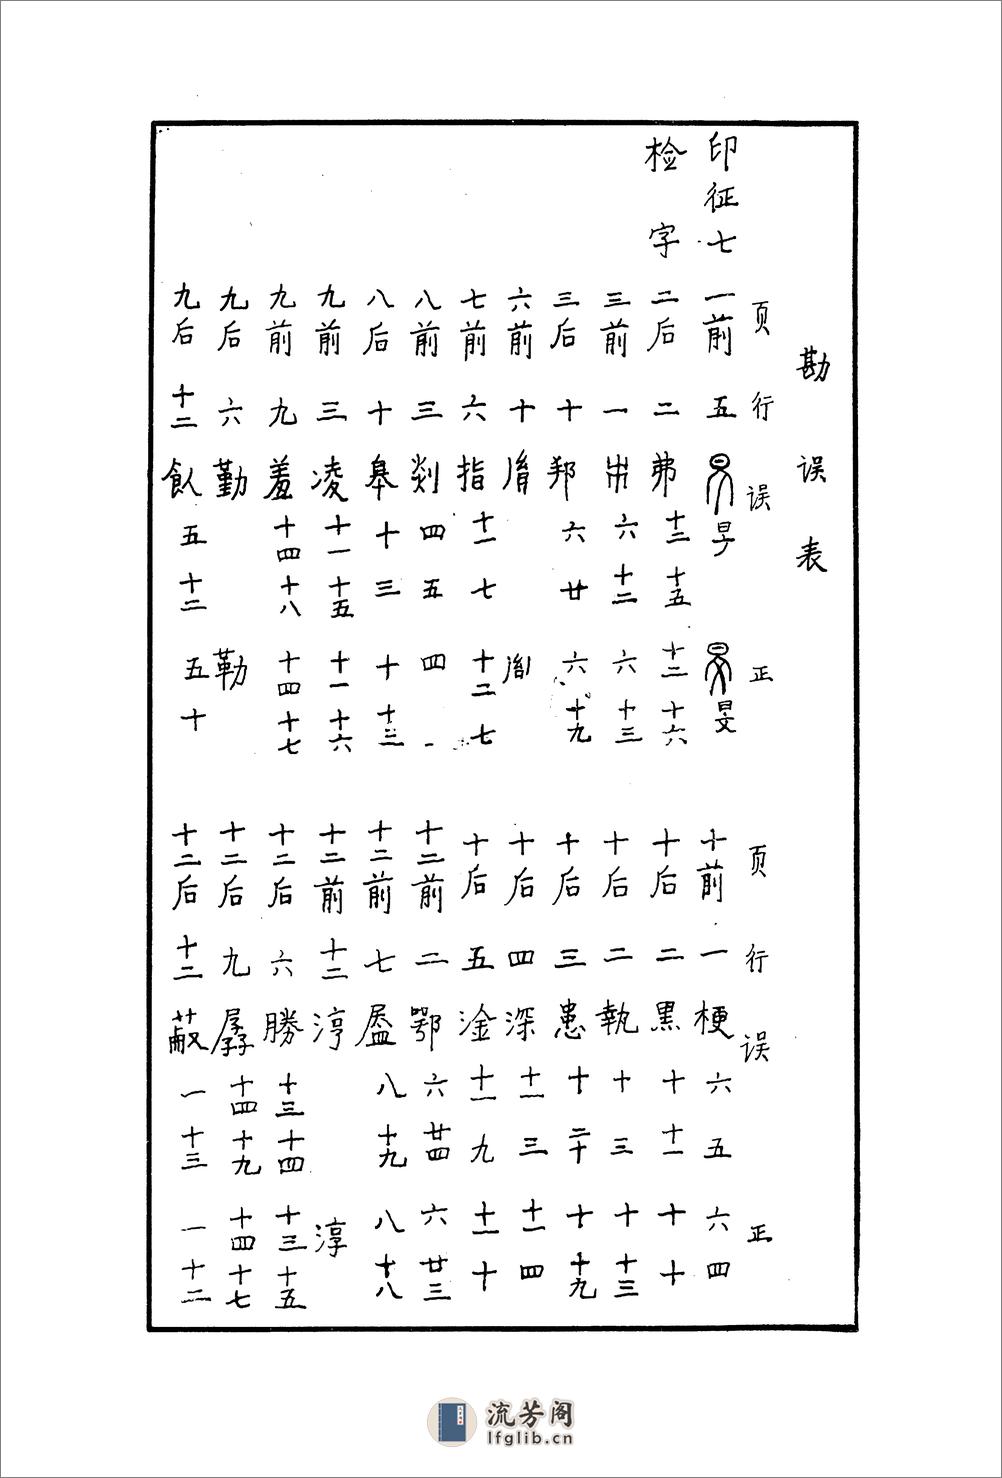 勘误表
页 行 误 正 页 行 误 正
印征七 一前 五 旻 十前 一 梗 六 五 六 四
检字 二后 二 弗 十二 十五 十二 十六 十后 二 黑 十 十一 十 十
三前 一 六 十二 六 十三 十后 二 執 十 三 十 十三
三后 十 邦 六 廿 六 十九 十后 三 患 十 二十 十 十九
六前 十 十后 四 深 十一 三 十一 四
七前 六 指 十一 七 十二 七 十后 五 淦 十一 九 十一 十
八前 三 剡 四 五 四 一 十二前 二 鄂 六 廿四 六 廿三
八后 十 皋 十 三 十 十三 十二前 七 八 十九 八 十八
九前 三 凌 十一 十五 十一 十六 十二前 十二 淳
九前 九 羞 十四 十八 十四 十七 十二后 六 勝 十三 十四 十三 十五
九后 六 勤 勒 十二后 九 孱 十四 十九 十四 十七
九后 十二 飲 五 十二 五 十 十二后 十二 蔽 一 十三 一 十二
流芳阁
lfglib.cn